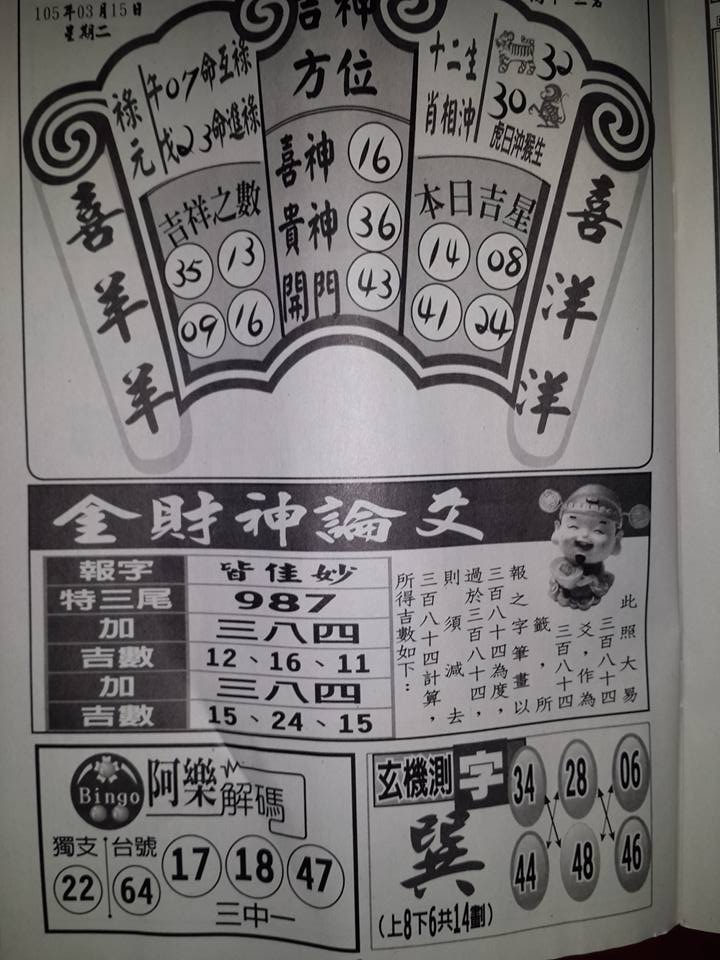 105年03月15日
星期二
吉神
方位
祿元
午07命互祿
戊23命進祿
十二生
肖相沖
32
30
虎日沖猴生
喜神 16
貴神 36
開門 43
吉祥之數
35 13
09 16
本日吉星
14 08
41 24
喜羊羊
喜洋洋
金財神論爻
報字 皆佳妙
特三尾 987
加 三八四
吉數 12、16、11
加 三八四
吉數 15、24、15
此照大易
三百八十四
爻,作為
三百八十四
籤,所
報之字筆畫以
三百八十四為度,
過於三百八十四,
則須減去
三百八十四計算,
所得吉數如下:
Bingo
阿樂解碼
獨支 台號
22 64 17 18 47
三中一
玄機測字
巽
(上8下6共14劃)
34 28 06
44 48 46